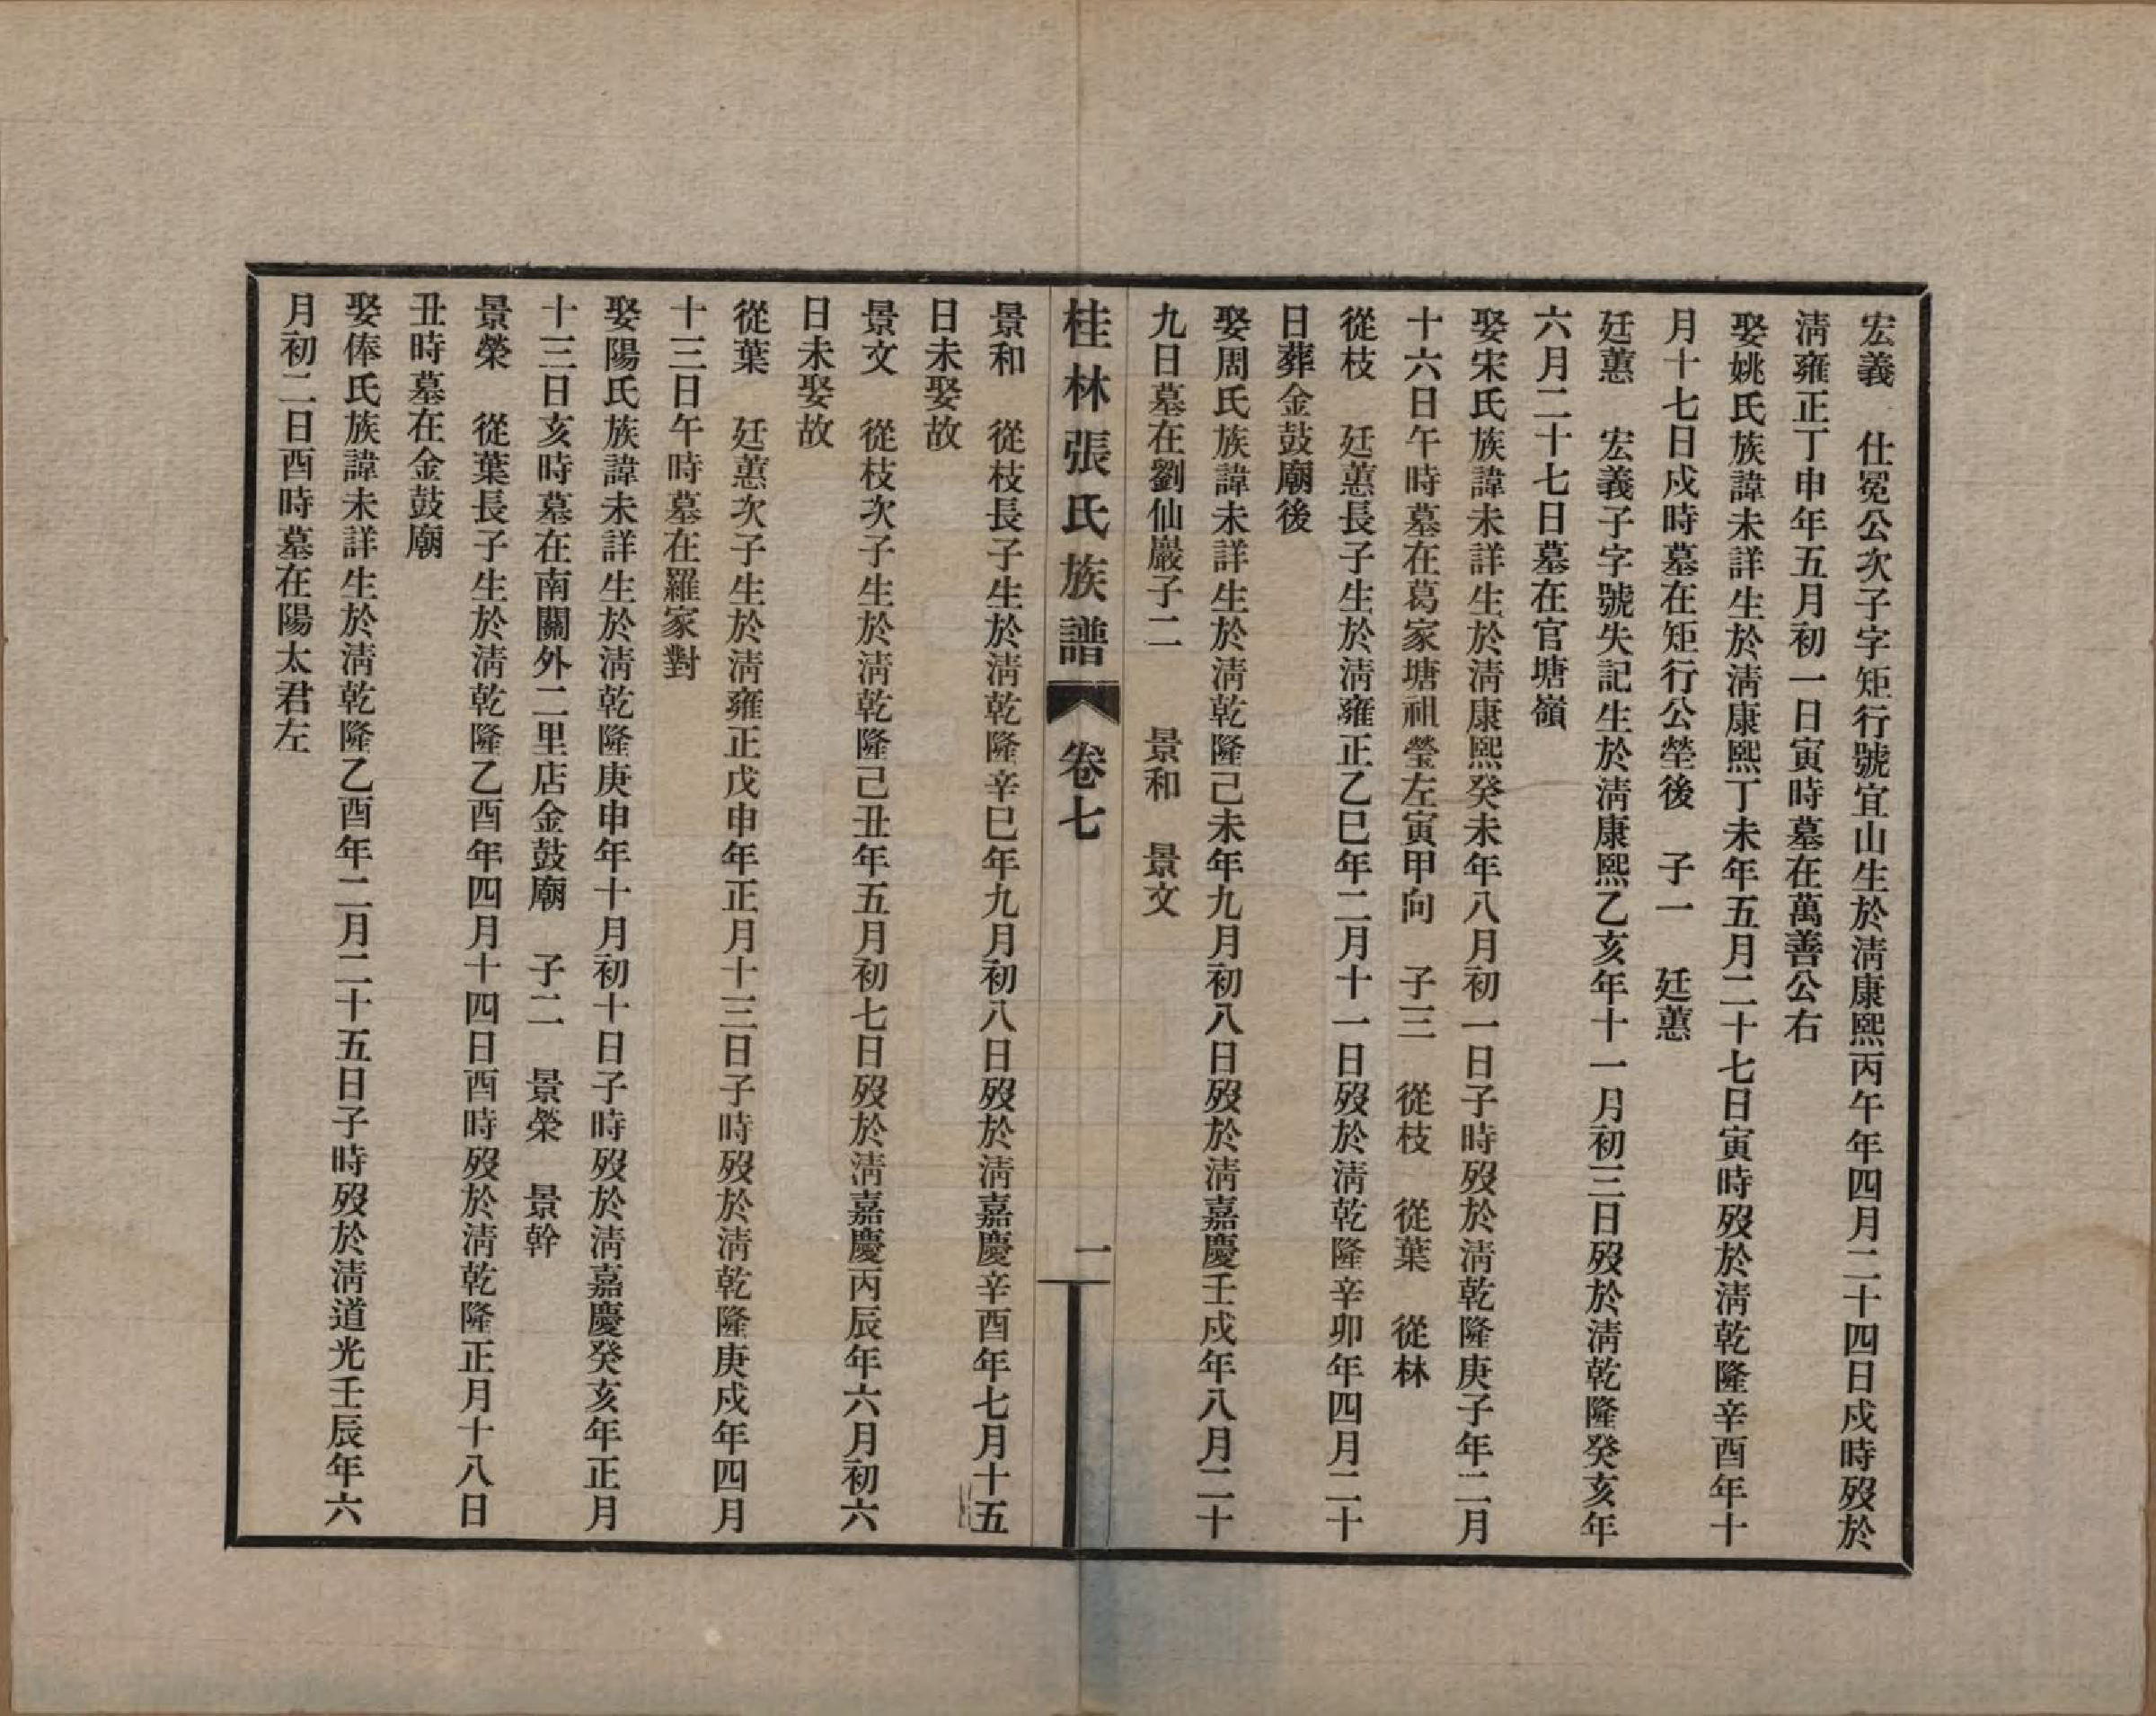 宏義　仕冕公次子字矩行號宜山生於淸康熙丙午年四月二十四日戍時歿於
淸雍正丁申年五月初一日寅時墓在萬善公右
娶姚氏族諱未詳生於淸康熙丁未年五月二十七日寅時歿於淸乾隆辛酉年十
月十七日戍時墓在矩行公塋後　子一　廷蕙
廷蕙　宏義子字號失記生於淸康熙乙亥年十一月初三日歿於淸乾隆癸亥年
六月二十七日墓在官塘嶺
娶宋氏族諱未詳生於淸康熙癸未年八月初一日子時歿於淸乾隆庚子年二月
十六日午時墓在葛家塘祖瑩左寅甲向　子三　從枝　從葉　從林
從枝　廷蕙長子生於淸雍正乙巳年二月十一日歿於淸乾隆辛卯年四月二十
日葬金鼓廟後
娶周氏族諱未詳生於淸乾隆己未年九月初八日歿於淸嘉慶壬戍年八月二十
九日墓在劉仙巖子二　景和　景文
桂林張氏族譜　卷七　一
景和　從枝長子生於淸乾隆辛巳年九月初八日歿於淸嘉慶辛酉年七月十五
日未娶故
景文　從枝次子生於淸乾隆己丑年五月初七日歿於淸嘉慶丙辰年六月初六
日未娶故
從葉　廷蕙次子生於淸雍正戊申年正月十三日子時歿於淸乾隆庚戍年四月
十三日午時墓在羅家對
娶陽氏族諱未詳生於淸乾隆庚申年十月初十日子時歿於淸嘉慶癸亥年正月
十三日亥時墓在南關外二里店金鼓廟　子二　景榮　景幹
景榮　從葉長子生於淸乾隆乙酉年四月十四日酉時歿於淸乾隆正月十八日
丑時墓在金鼓廟
娶俸氏族諱未詳生於淸乾隆乙酉年二月二十五日子時歿於淸道光壬辰年六
月初二日酉時墓在陽太君左